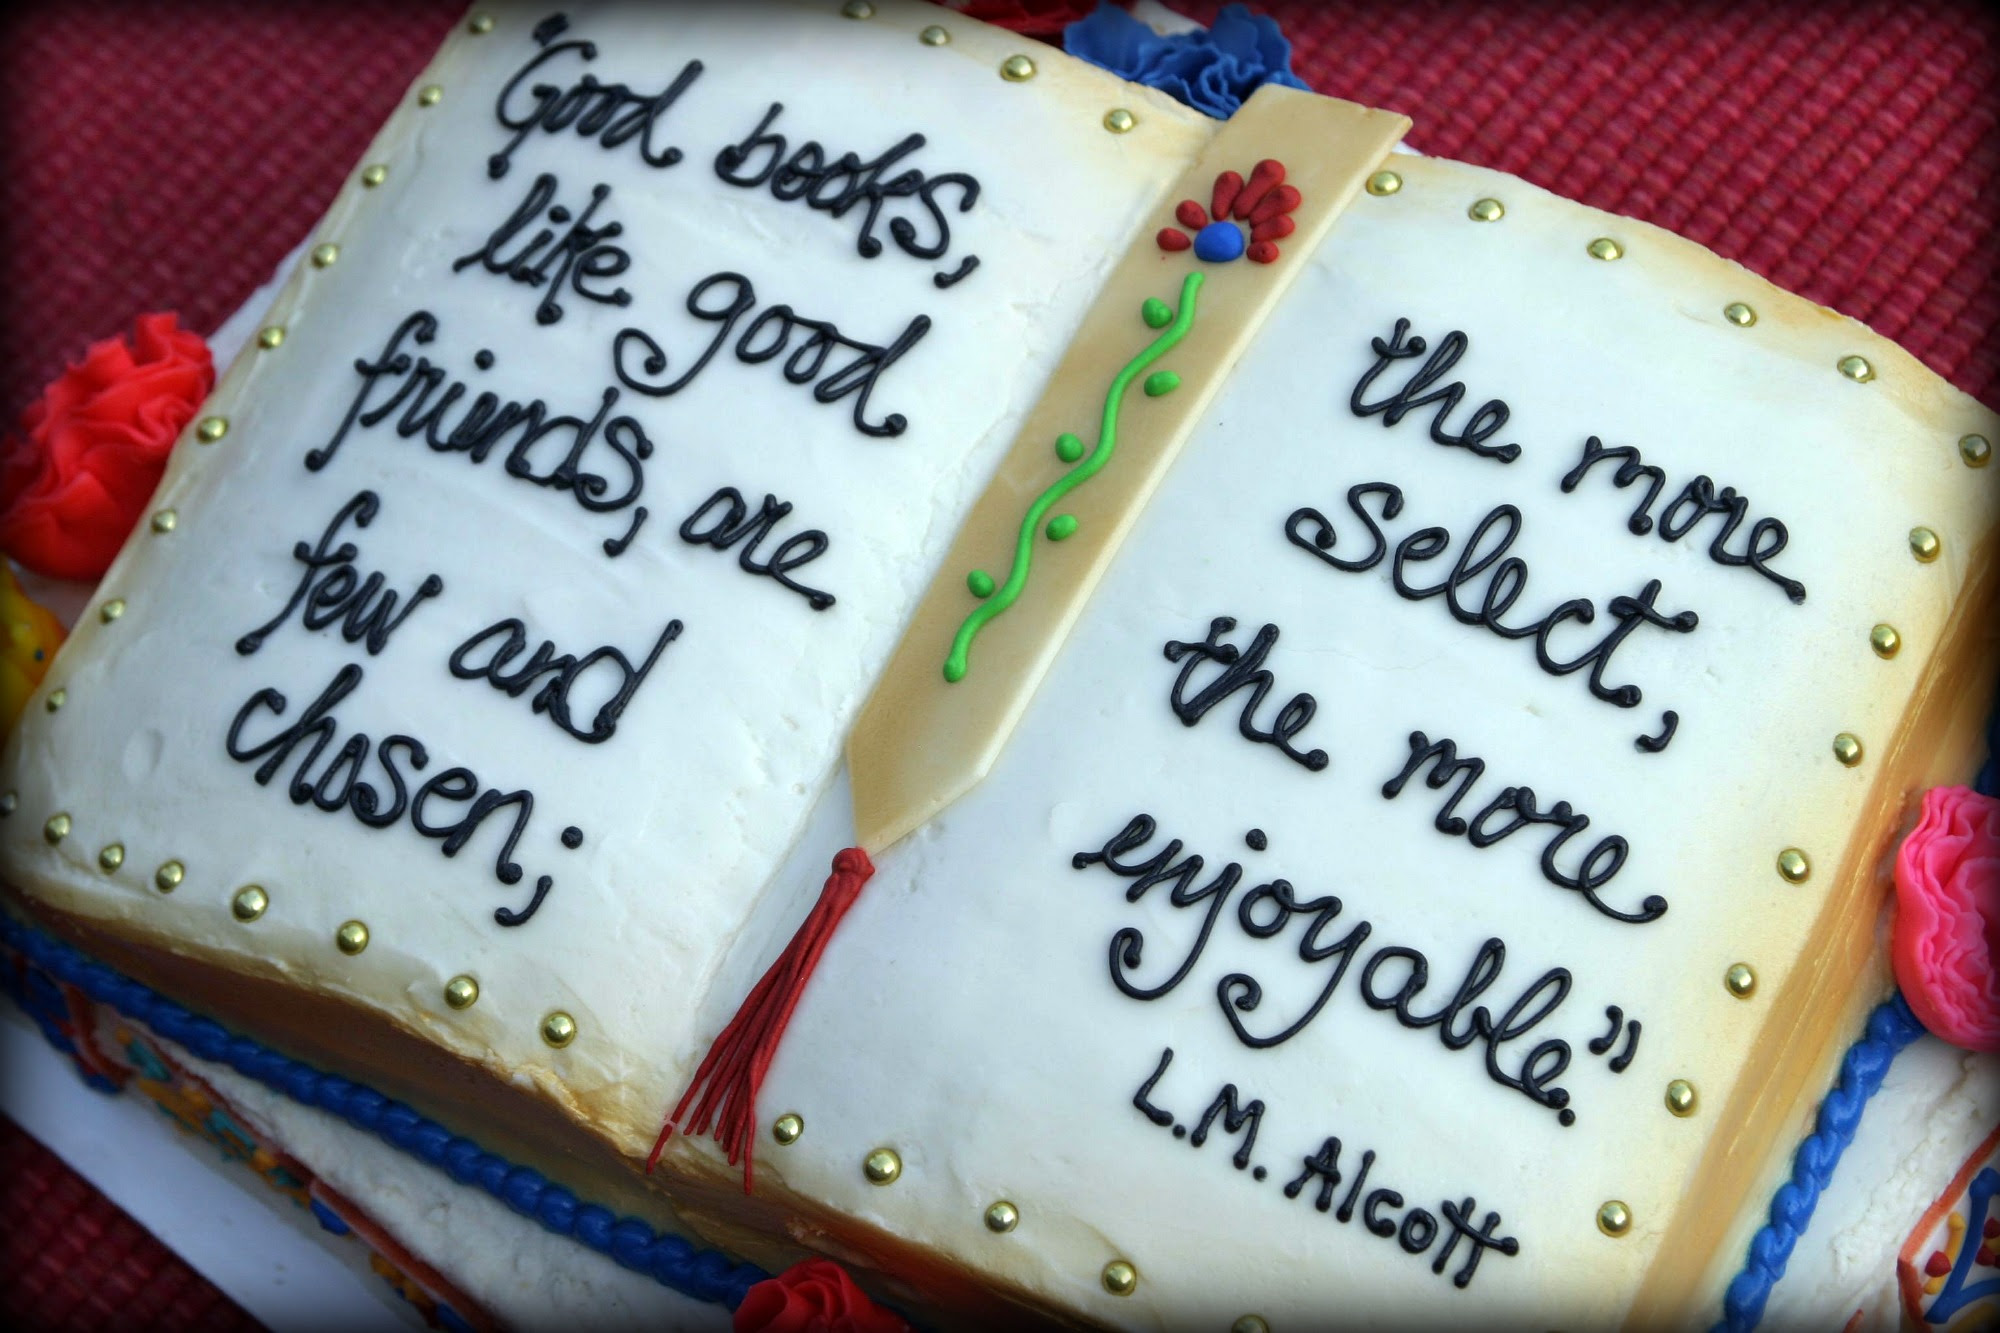 "Good books,
like good
friends, are
few and
chosen;
the more
select,
the more
enjoyable."
L.M. Alcott